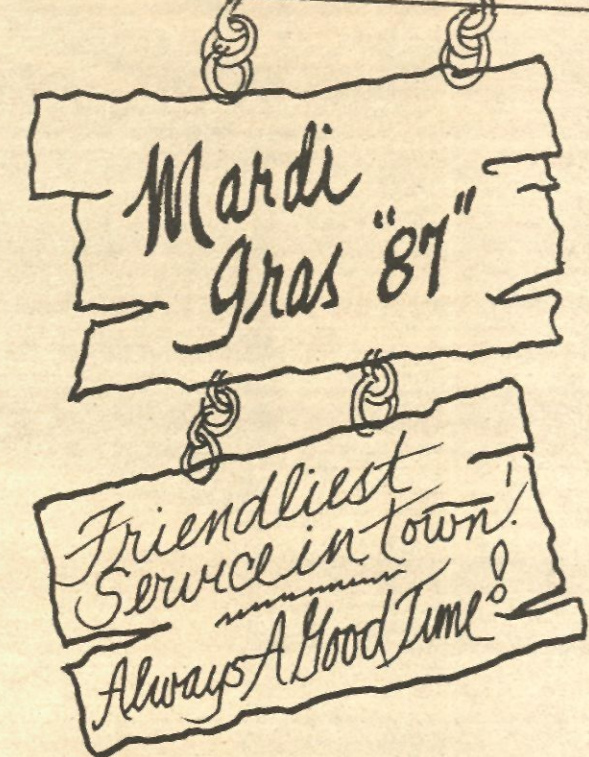 Mardi
Gras "87"
Friendliest
Service in town!
Always A Good Time!